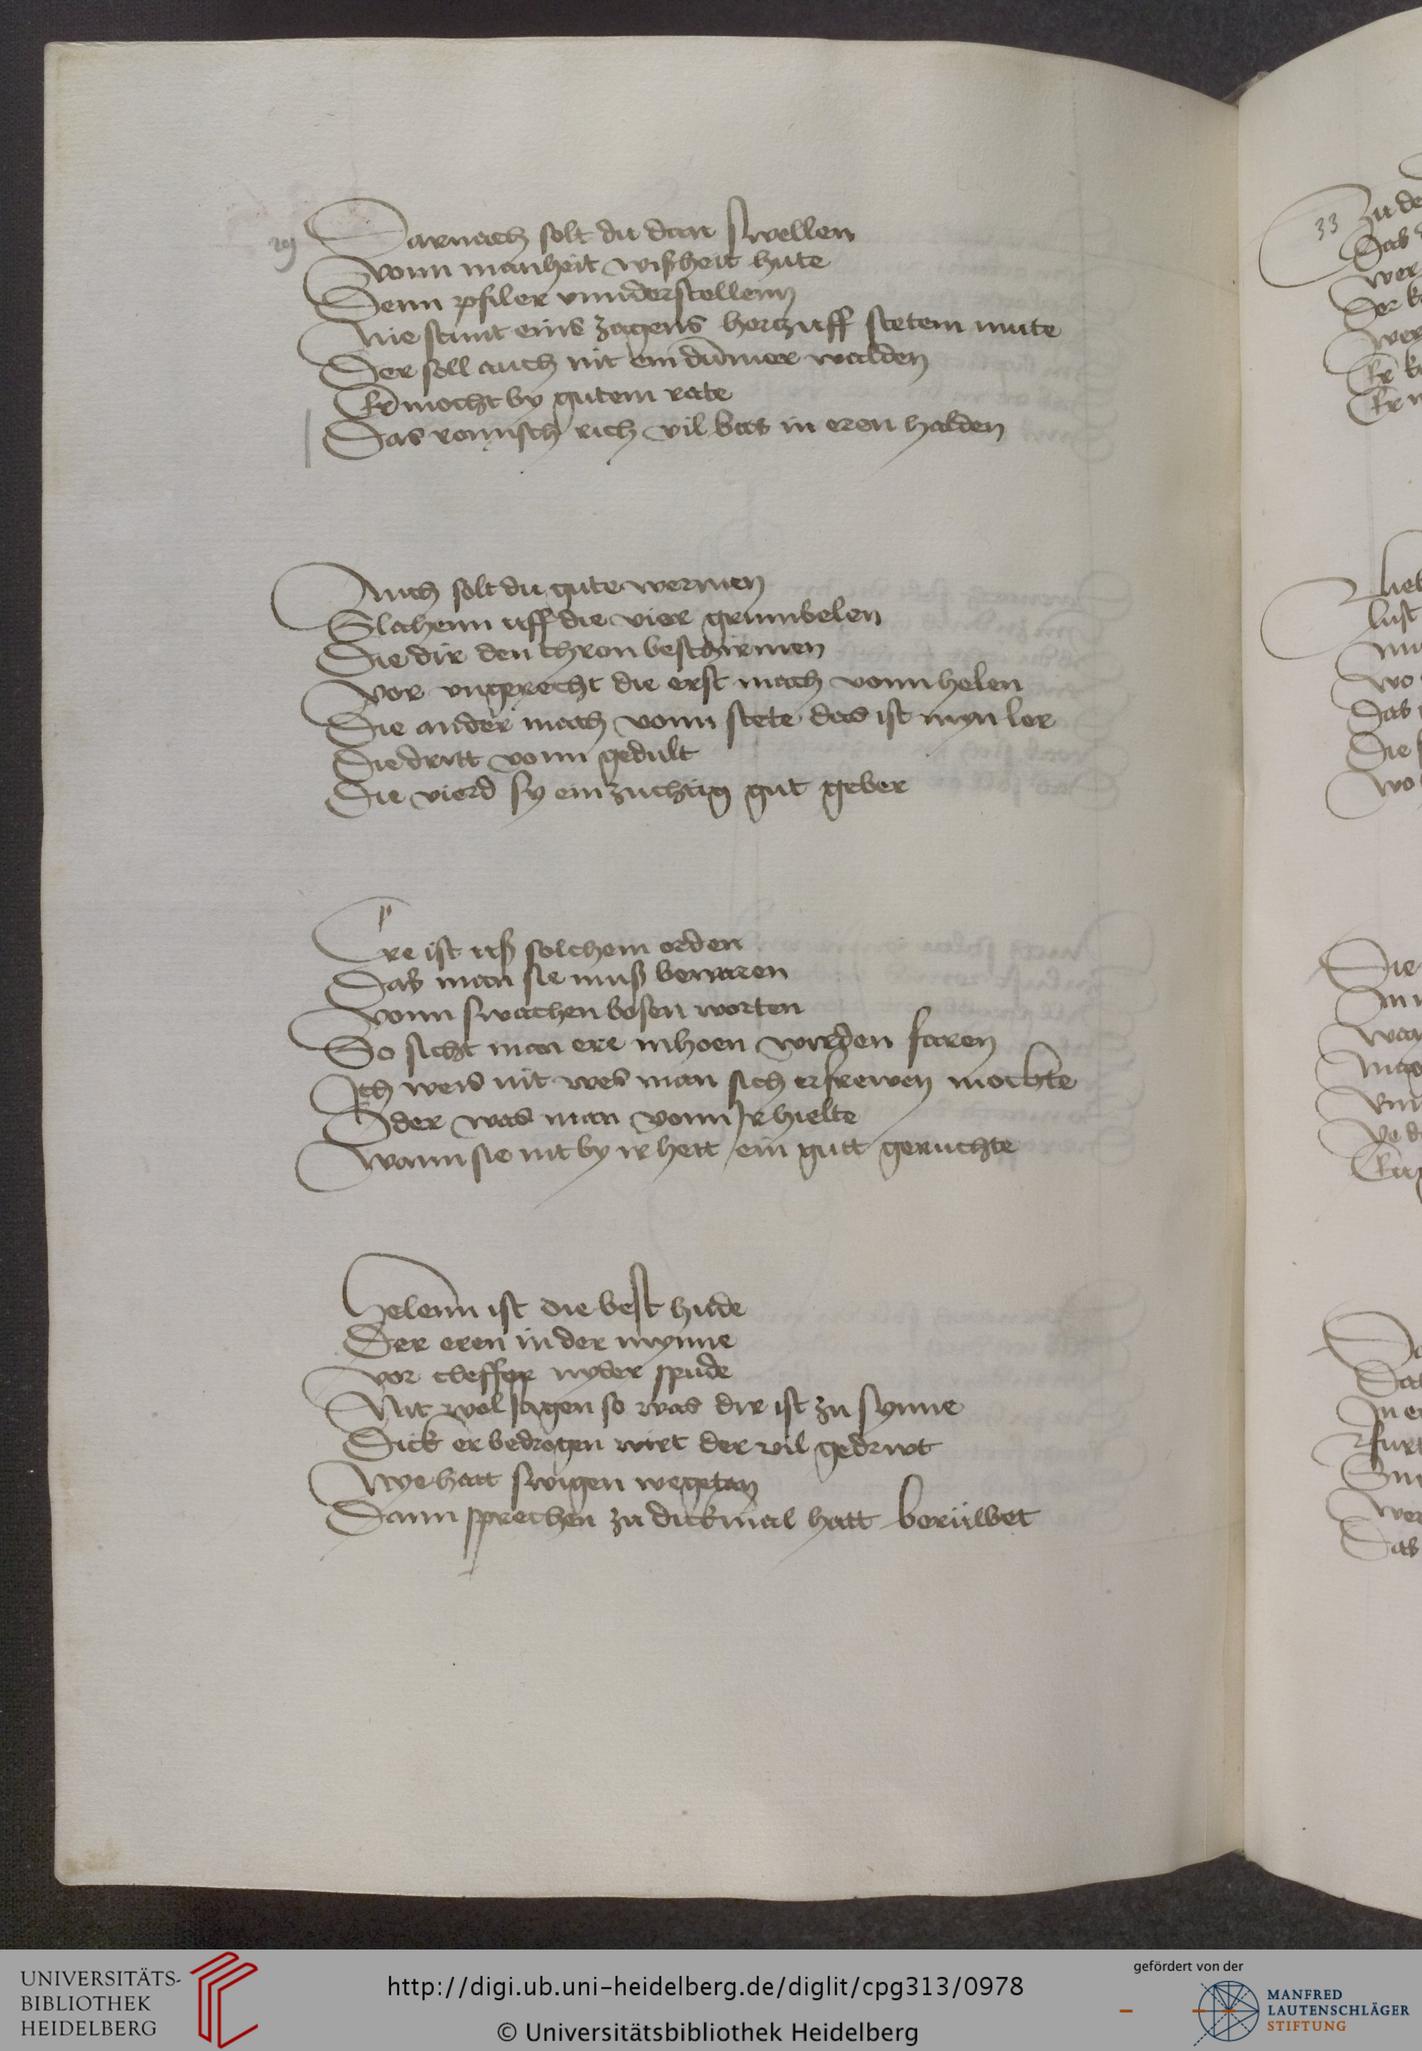 Darnach solt du dan swellen
Vonn manheit wißheit hute
Denn pfiler vnnderstellenn
Nie stunt eins zagens hercz uff stetem mute
Der soll auch nit ein dummer walden
Er mocht by gutem rate
Das romisch rich vil bas in eren halden
Auch solt du gute wermen
Slahenn uff die vier
Die dir den thron beschirmen
Vor vngerecht die erst mach vonn helen
Die ander mach vonn stete das ist myn ler
Die dritt vonn gedult
Die vierd sy ein zuchtig gut geber
Ere ist uß solchem orden
Das man sie muß bewaren
Vonn swachen bosen worten
So sicht man ere in hoen wirden faren
Ich weis nit wes man sich erfrewen mochte
Oder was man vonn Ir hielte
Wann sie nit by ir hett ein gutt geruchte
Helenn ist die best hude
Der eren in der mynne
Vor cleffer nyder spude
Nit wol sagen so was dir ist zu synne
Dick er bedrogen wirt der vil gedruwt
Nye hatt swigen we getan
Dann sprechen zu dickmal hatt beruwet
33
UNIVERSITÄTS-
BIBLIOTHEK
HEIDELBERG
http://digi.ub.uni-heidelberg.de/diglit/cpg313/0978
© Universitätsbibliothek Heidelberg
gefördert von der
MANFRED
LAUTENSCHLÄGER
STIFTUNG